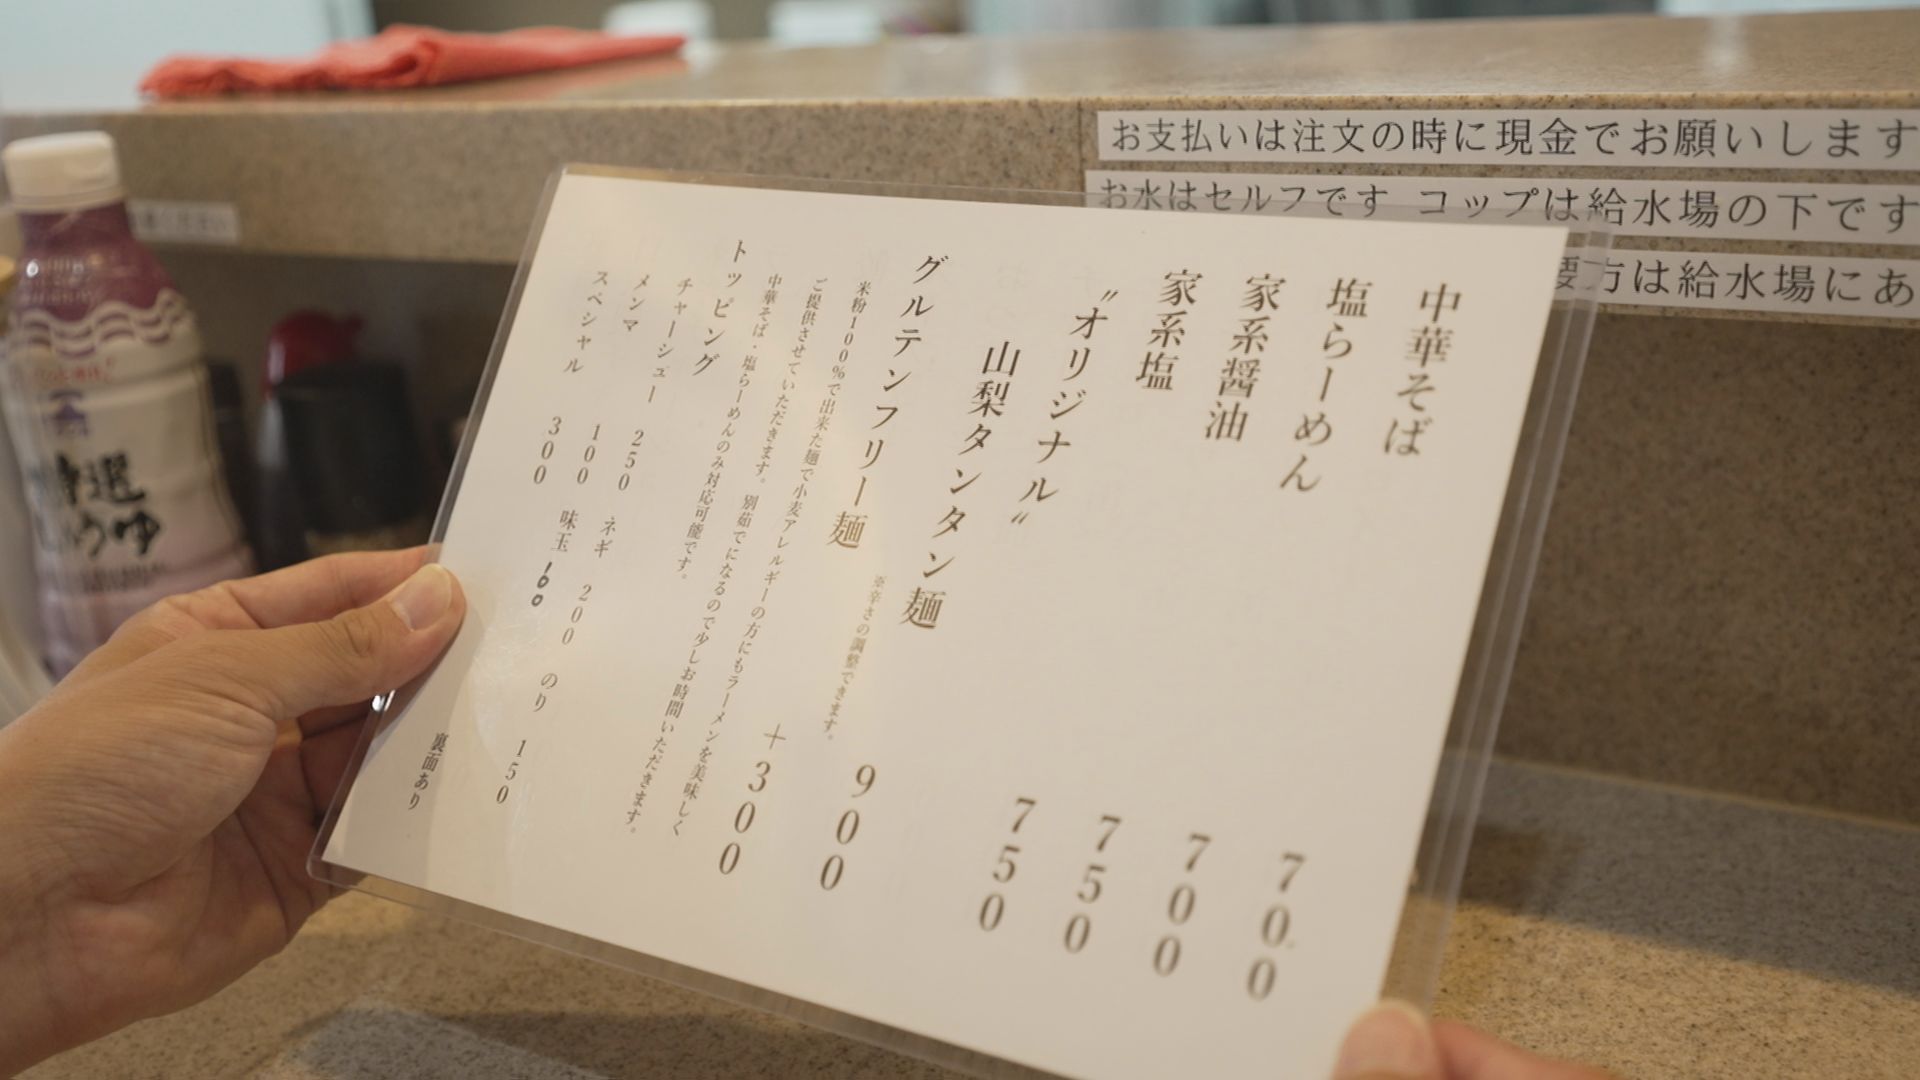 お支払いは注文の時に現金でお願いします
お水はセルフです コップは給水場の下です
方は給水場にあ
中華そば 700
塩らーめん 700
家系醤油 750
家系塩 750
"オリジナル"
山梨タンタン麺 900
※辛さの調整できます。
グルテンフリー麺 +300
米粉100%で出来た麺で小麦アレルギーの方にもラーメンを美味しく
ご提供させていただきます。別茹でになるので少しお時間いただきます。
中華そば・塩らーめんのみ対応可能です。
トッピング
チャーシュー 250 ネギ 200 のり 150
メンマ 100 味玉 100
スペシャル 300
裏面あり
特選
しょうゆ